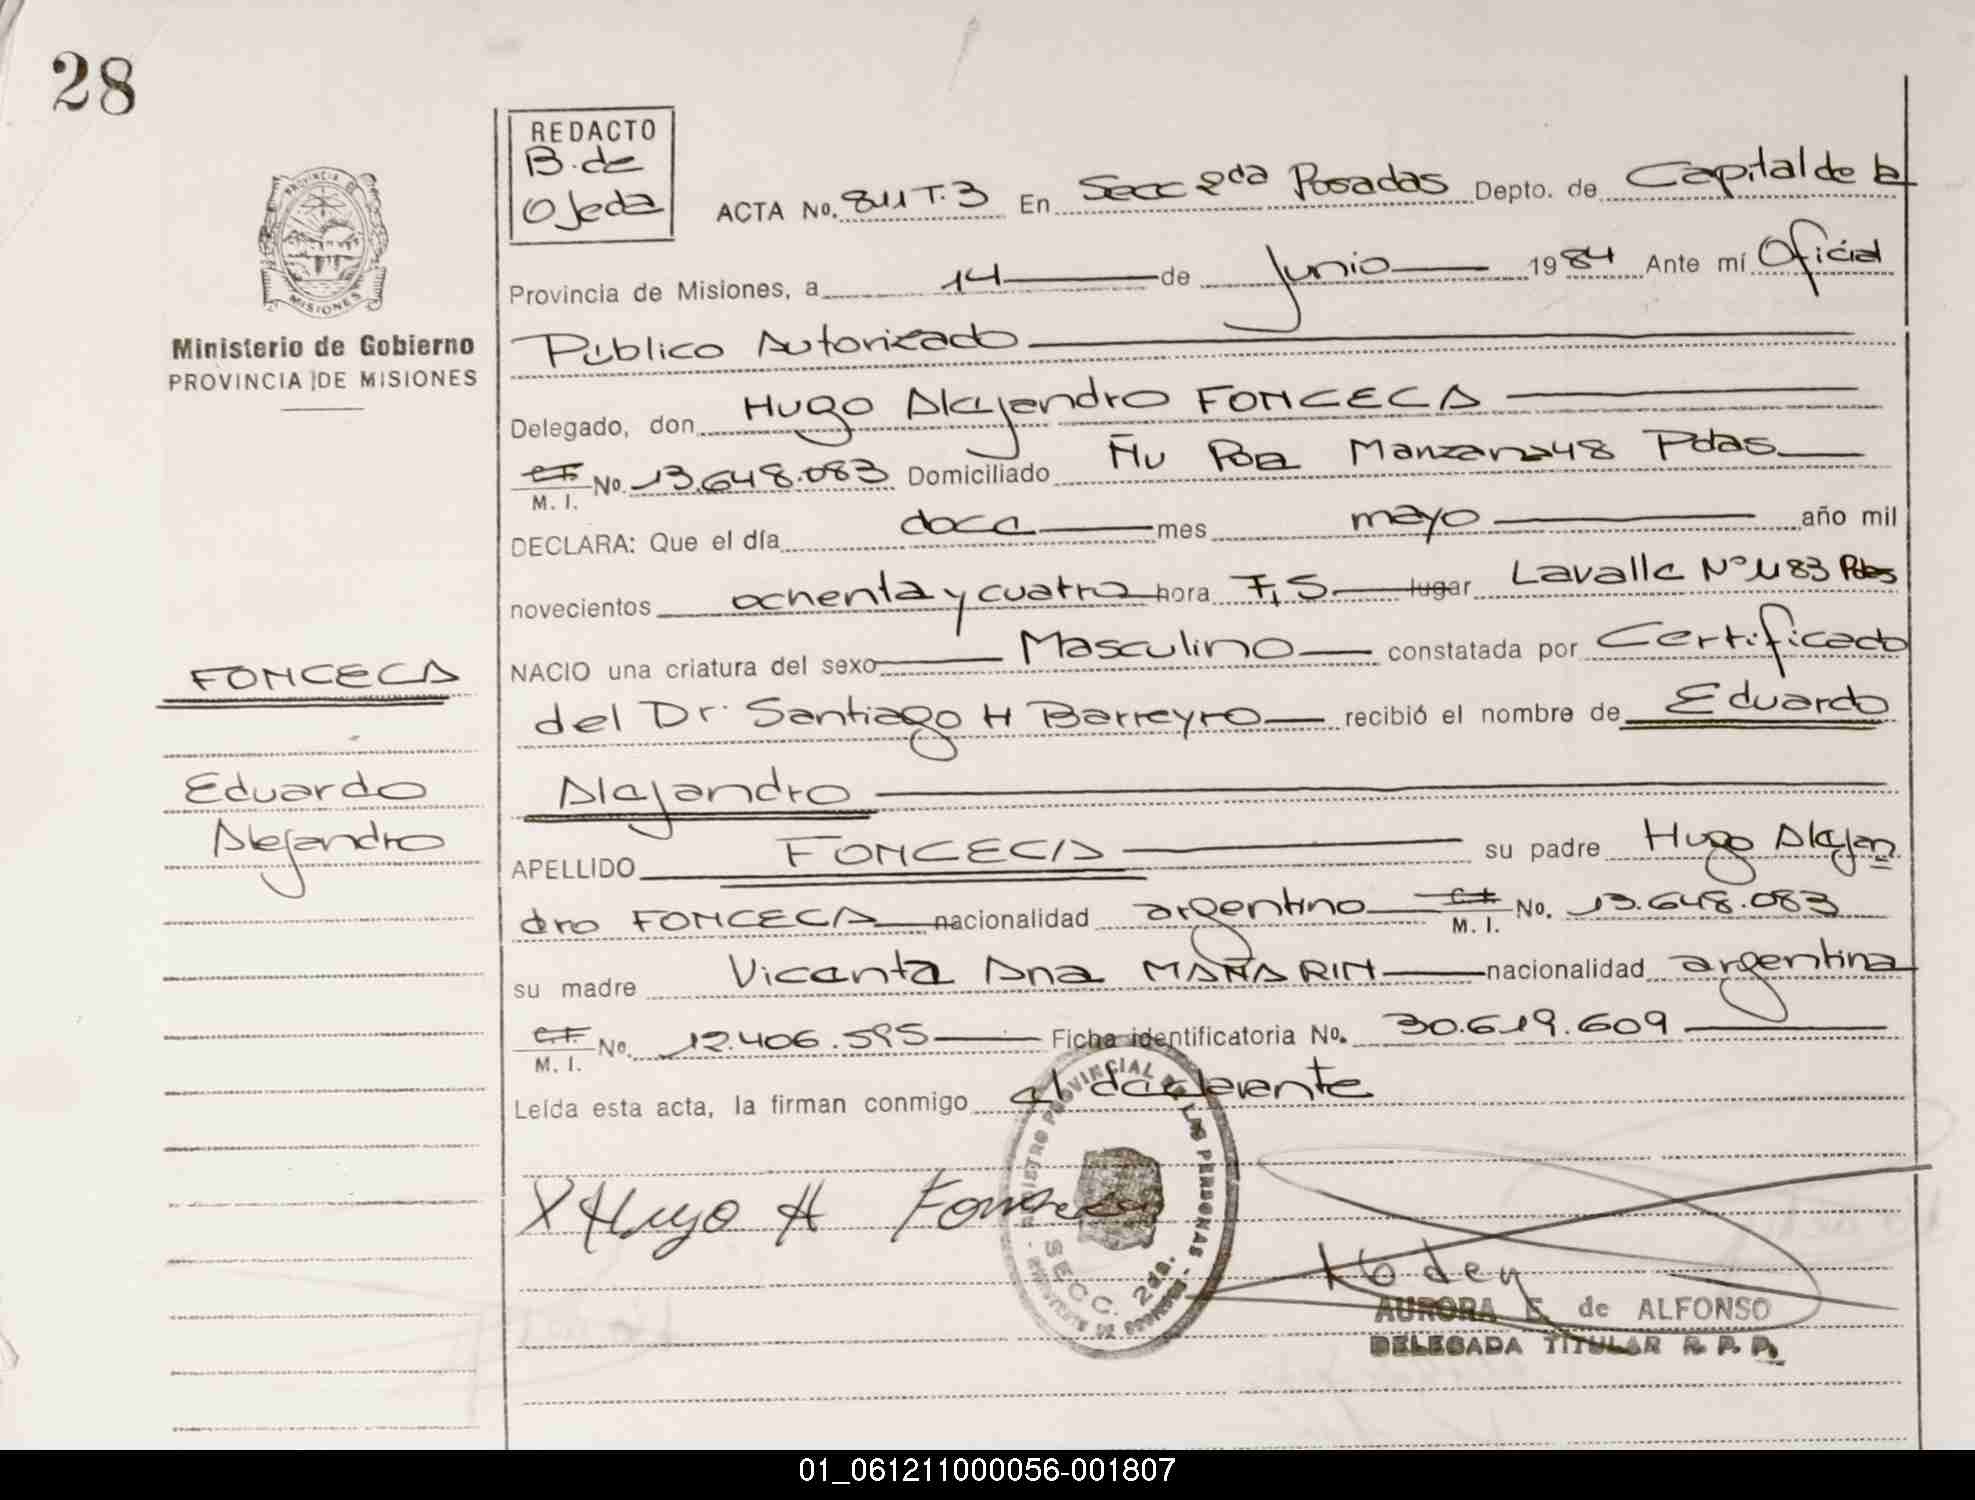 28
REDACTO
B. de
Ojeda
ACTA No. 811 T. 3 En Secc 2da Posadas Depto. de Capital de la
Provincia de Misiones, a 14 de Junio 1984 Ante mí Oficial
Público Autorizado
Delegado, don Hugo Alejandro FONCECA
C.I. M. I. No. 13.648.083 Domiciliado Ñu Pora Manzana 48 Pdas
DECLARA: Que el día doce mes mayo año mil
novecientos ochenta y cuatro hora 7,5 lugar Lavalle Nº 1183 Pdas
NACIO una criatura del sexo Masculino constatada por Certificado
del Dr. Santiago H Barreyro recibió el nombre de Eduardo
Alejandro
APELLIDO FONCECA su padre Hugo Alejan
dro FONCECA nacionalidad argentino C.I. M. I. No. 13.648.083
su madre Vicenta Ana MAÑARIN nacionalidad argentina
C.I. M. I. No. 12.406.595 Ficha identificatoria No. 30.619.609
Leída esta acta, la firman conmigo el declarante
X Hugo A Fonseca
REGISTRO PROVINCIAL DE LAS PERSONAS
SECC. 2da.
AURORA E. de ALFONSO
DELEGADA TITULAR R. P. P.
PROVINCIA DE
MISIONES
Ministerio de Gobierno
PROVINCIA DE MISIONES
FONCECA
Eduardo
Alejandro
01_061211000056-001807